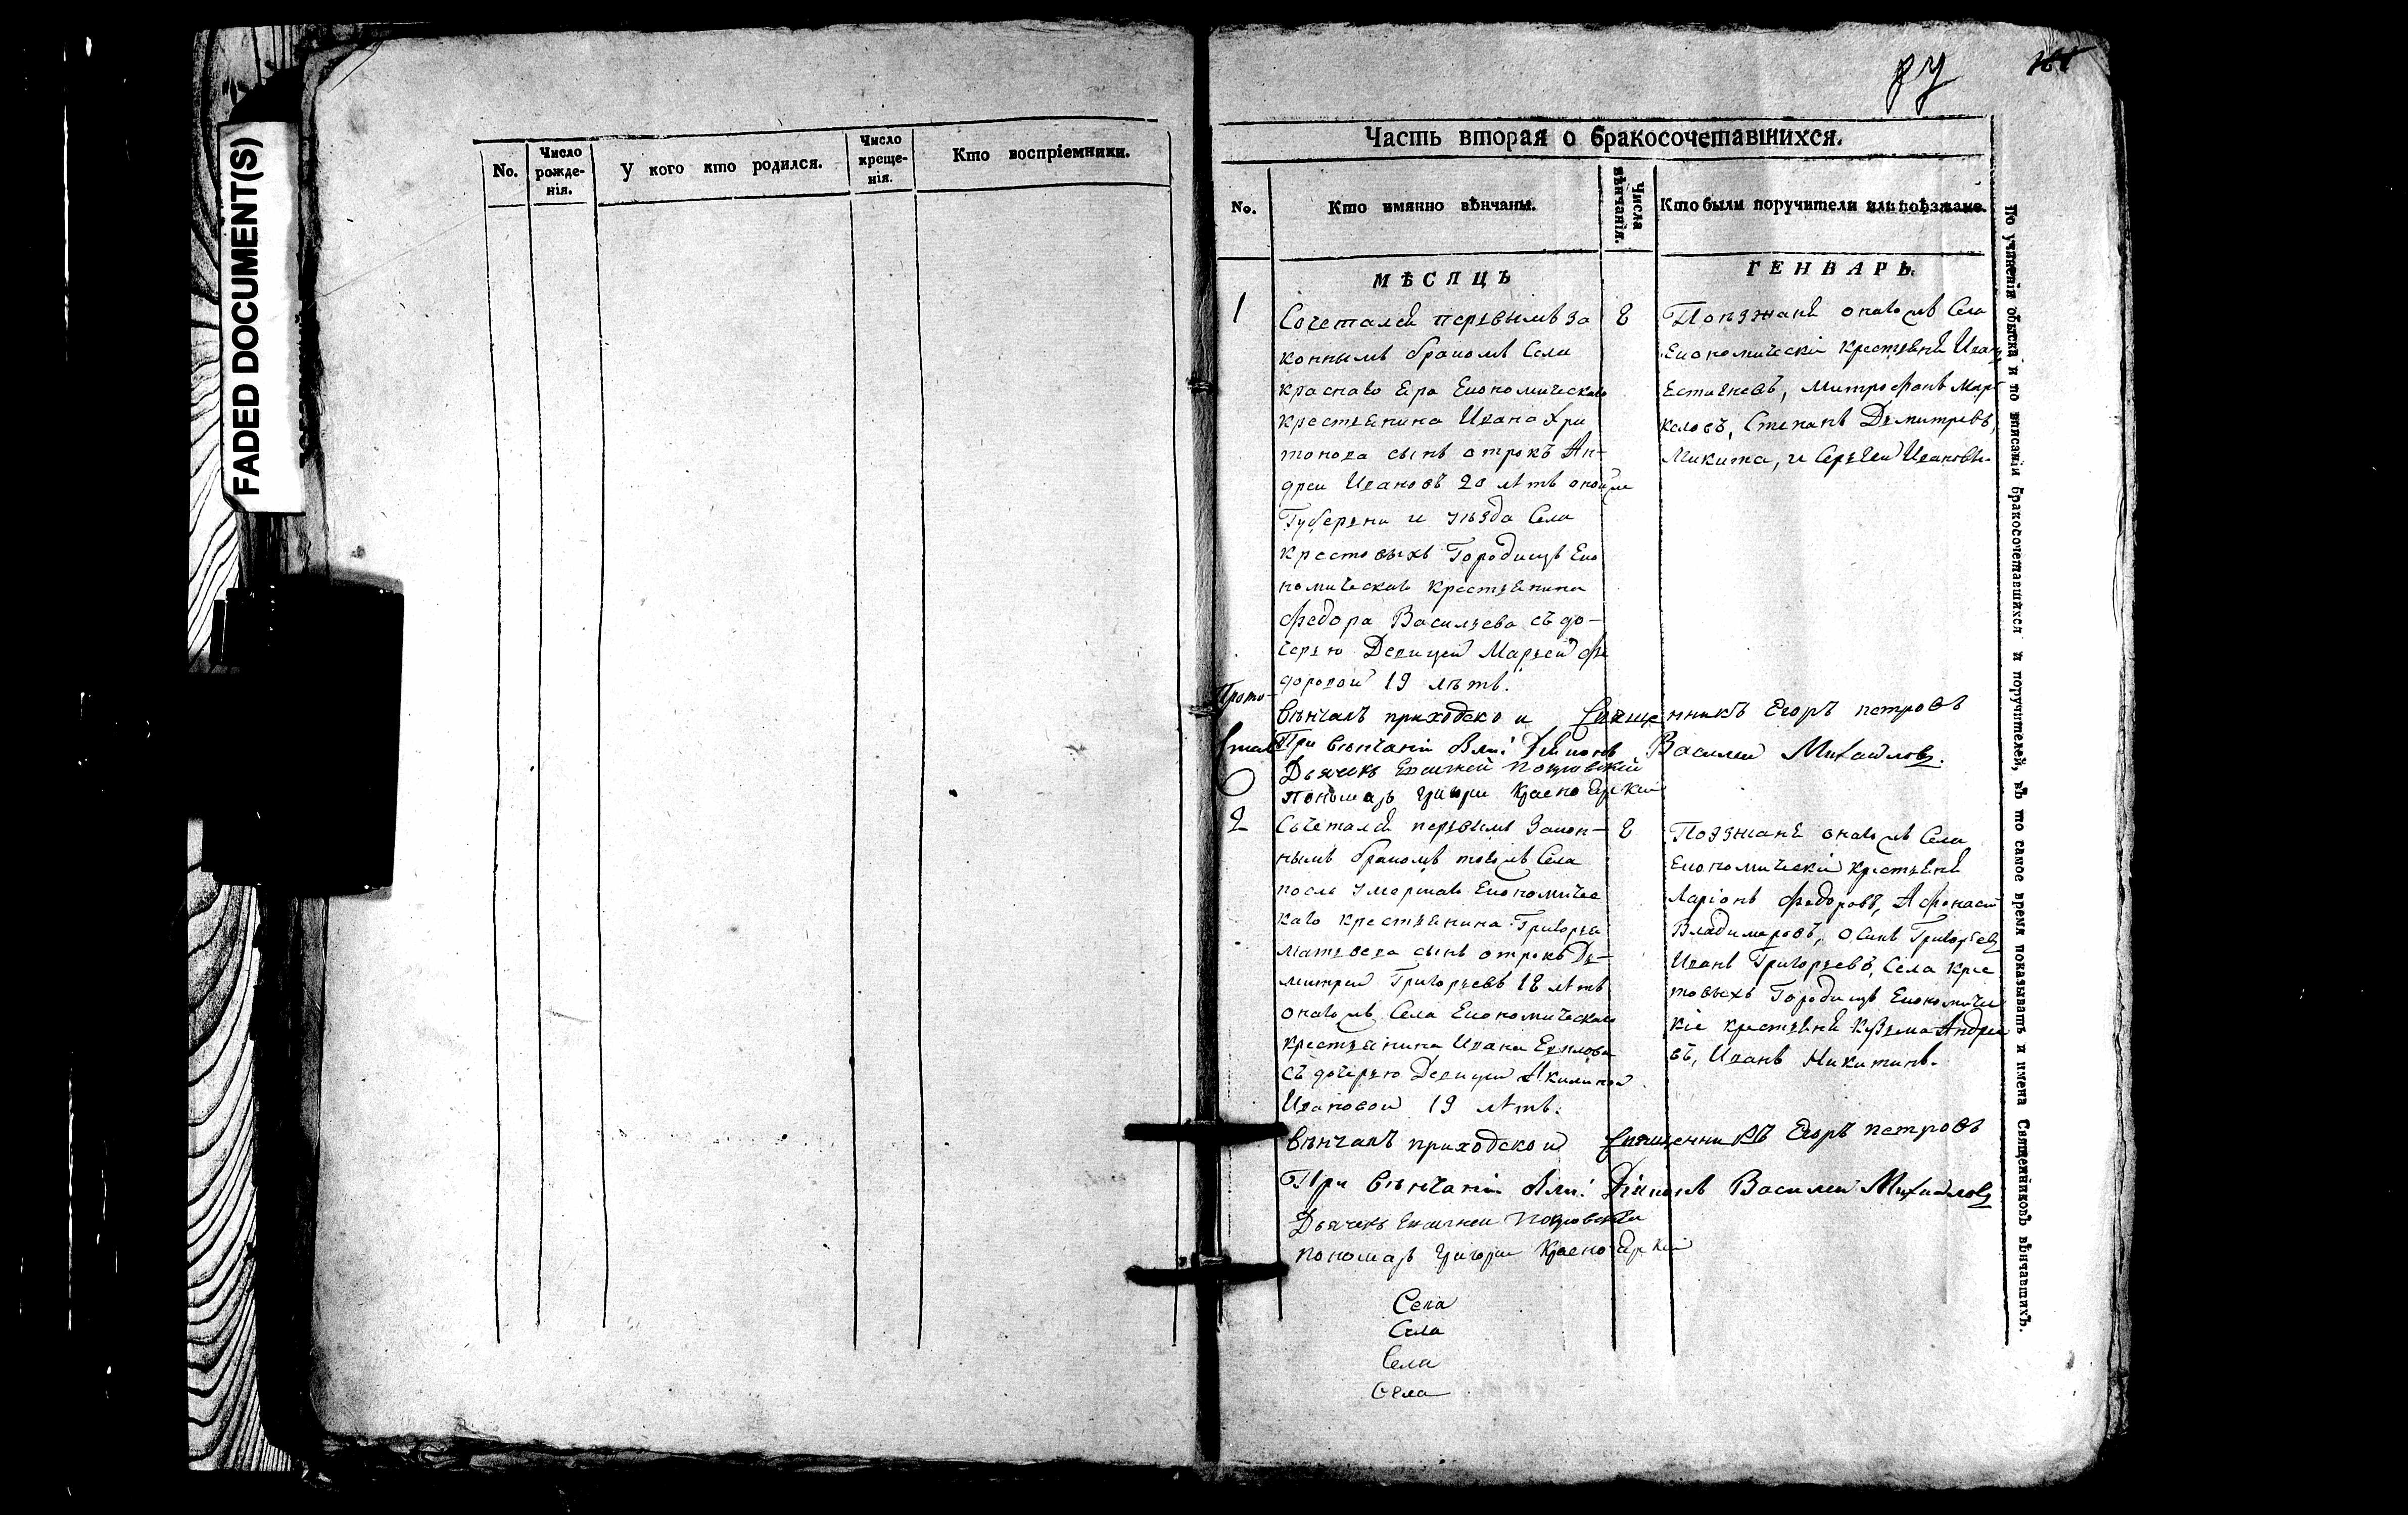 FADED DOCUMENT(S)
No.
Число рожде- нія.
У кого кто родился.
Число креще- нія.
Кто воспріемники.
Часть вторая о бракосочетавшихся.
No.
Кто имянно вѣнчаны.
Числа вѣнчанія.
Кто были поручители или поѣзжане.
МѢСЯЦЪ
ГЕНВАРЬ.
1
Сочетался первымъ за
коннымъ бракомъ Села
краснаго Яра Економическаго
крестьянина Ивана
сынъ отрокъ Ан-
дреи Ивановъ 20 лѣтъ
Губерніи и уѣзда Села
крестовыхъ Городищъ Еко
номическаго крестьянина
Федора Васильева съ до-
черью Девицей Марьей Фе
доровой 19 лѣтъ.
8
Поезжанѣ Села
Економическіи крестьянѣ Иванъ
Митрофанъ
Степанъ Демитревъ,
Микита, и Сергеи Ивановы.
вѣнчалъ приходскои Священникъ Егоръ петровъ
При венчаніи были: Діяконъ Василеи Михаиловъ.
Дьячекъ Покровскій
пономарь Григори Красноярскій
2
Сочеталса первымъ Закон-
нымъ бракомъ Села
после умершаго Економичес
каго крестьянина Григорья
матвеева сынъ отрокъ Де-
митреи Григорьевъ 18 лѣтъ
Села Економическаго
крестьянина Ивана
съ дочерью Девицеи Акилиной
Ивановои 19 лѣтъ.
8
Поезжанѣ Села
Економическіи крестьянѣ
Ларіонъ Федоровъ, Афонасей
Владимеровъ, Осипъ Григорьевъ
Иванъ Григорьевъ, Села крес
товыхъ Городищъ Економичес
кіе крестьянѣ Кузема Андре
въ, Иванъ Никитинъ.
вѣнчалъ приходскои Священникъ Егоръ петровъ
При венчаніи были: Діяконъ Василеи Михаиловъ
Дьячекъ Покровскіи
пономарь Григори Красноярскій
Села
Села
Села
Села
По учиненіи обыска и по вписаніи бракосочетавшихся и поручителей, въ то самое время показывать и имена Священниковъ вѣнчавшихъ.